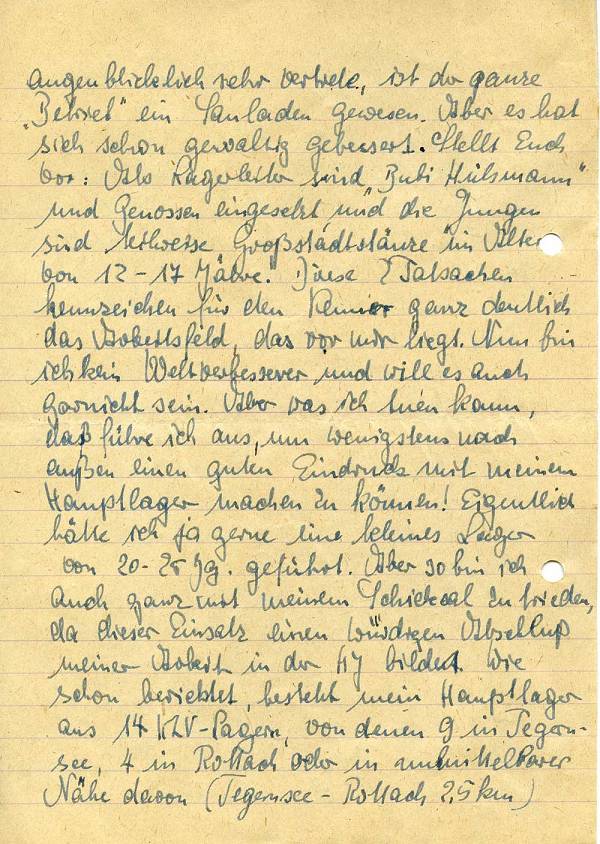 augenblicklich sehr vertrete, ist der ganze
„Betrieb" ein Sauladen gewesen. Aber es hat
sich schon gewaltig gebessert. Stellt Euch
vor: Als Lagerleiter sind „Bubi Hülsmann"
und Genossen eingesetzt und die Jungen
sind teilweise „Großstadtstänze" im Alter
von 12-17 Jahre. Diese 2 Tatsachen
kennzeichen für den Kenner ganz deutlich
das Arbeitsfeld, das vor mir liegt. Nun bin
ich kein Weltverbesserer und will es auch
garnicht sein. Aber was ich tuen kann,
daß führe ich aus, um wenigstens nach
außen einen guten Eindruck mit meinem
Hauptlager machen zu können! Eigentlich
hätte ich ja gerne eine kleines Lager
von 20-25 Jg. geführt. Aber so bin ich
auch ganz mit meinem Schicksal zufrieden,
da dieser Einsatz einen würdigen Abschluß
meiner Arbeit in der HJ bildet. Wie
schon berichtet, besteht mein Hauptlager
aus 14 KLV-Lagern, von denen 9 in Tegern-
see, 4 in Rottach oder in unmittelbarer
Nähe davon (Tegernsee - Rottach 2,5 km)